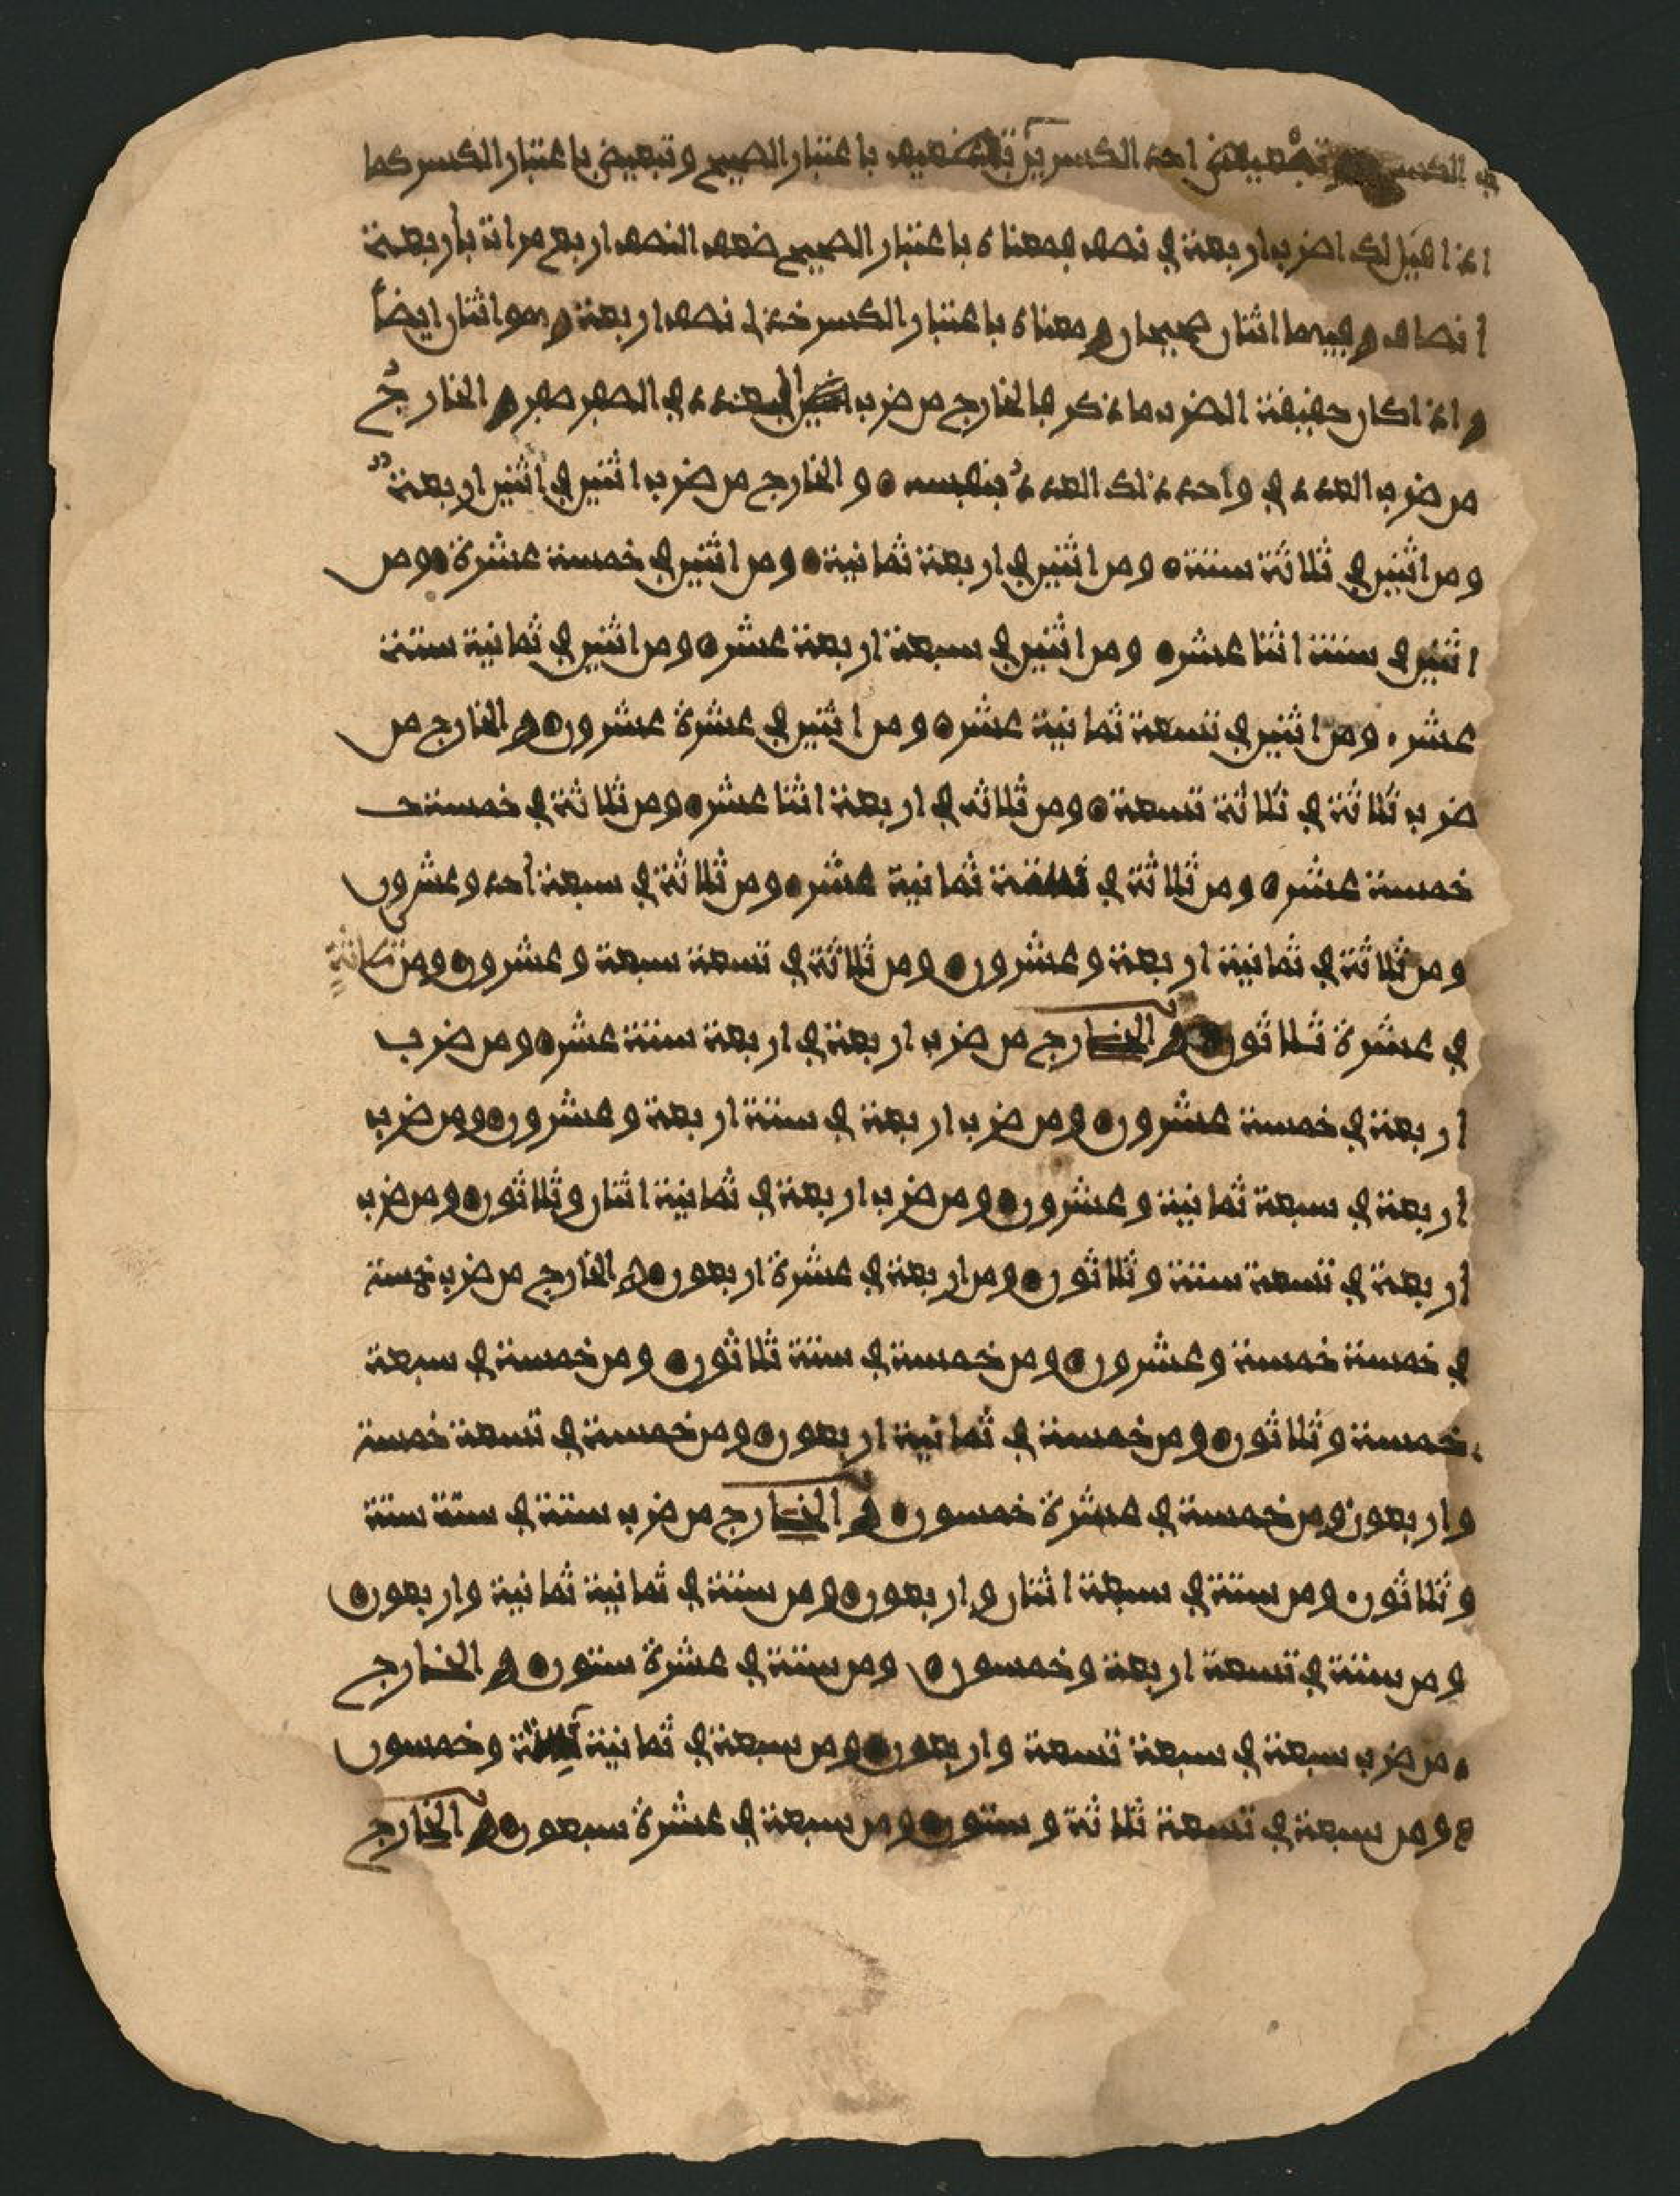 في الكسر تبعيض احد الكسرين تضعيف باعتبار الصحيح وتبعيض باعتبار الكسر كما
اذا قيل لك اضرب اربعة في نصف فمعناه باعتبار الصحيح ضعف النصف اربع مرات باربعة
انصاف وفيهما اثنان صحيحان ومعناه باعتبار الكسر خذ لي نصف اربعة وهو اثنان ايضاً
واذا كان حقيقة الضرب ما ذكر فالخارج من ضرب العدد في الصفر صفر والخارجُ
من ضرب العدد في واحد ذلك العددُ بنفسه والخارج من ضرب اثنين في اثنين اربعةٌ
ومن اثنين في ثلاثة ستة ومن اثنين في اربعة ثمانية ومن اثنين في خمسة عشرة ومن
اثنين في ستة اثنا عشر ومن اثنين في سبعة اربعة عشر ومن اثنين في ثمانية ستة
عشر ومن اثنين في تسعة ثمانية عشر ومن اثنين في عشرة عشرون والخارج من
ضرب ثلاثة في ثلاثة تسعة ومن ثلاثة في اربعة اثنا عشر ومن ثلاثة في خمسة
خمسة عشر ومن ثلاثة في ستة ثمانية عشر ومن ثلاثة في سبعة احد وعشرون
ومن ثلاثة في ثمانية اربعة وعشرون ومن ثلاثة في تسعة سبعة وعشرون ومن ثلاثة
في عشرة ثلاثون والخارج من ضرب اربعة في اربعة ستة عشر ومن ضرب
اربعة في خمسة عشرون ومن ضرب اربعة في ستة اربعة وعشرون ومن ضرب
اربعة في سبعة ثمانية وعشرون ومن ضرب اربعة في ثمانية اثنان وثلاثون ومن ضرب
اربعة في تسعة ستة وثلاثون ومن اربعة في عشرة اربعون والخارج من ضرب خمسة
في خمسة خمسة وعشرون ومن خمسة في ستة ثلاثون ومن خمسة في سبعة
خمسة وثلاثون ومن خمسة في ثمانية اربعون ومن خمسة في تسعة خمسة
واربعون ومن خمسة في عشرة خمسون والخارج من ضرب ستة في ستة ستة
وثلاثون ومن ستة في سبعة اثنان واربعون ومن ستة في ثمانية ثمانية واربعون
ومن ستة في تسعة اربعة وخمسون ومن ستة في عشرة ستون والخارج
من ضرب سبعة في سبعة تسعة واربعون ومن سبعة في ثمانية ستة وخمسون
ومن سبعة في تسعة ثلاثة وستون ومن سبعة في عشرة سبعون والخارج